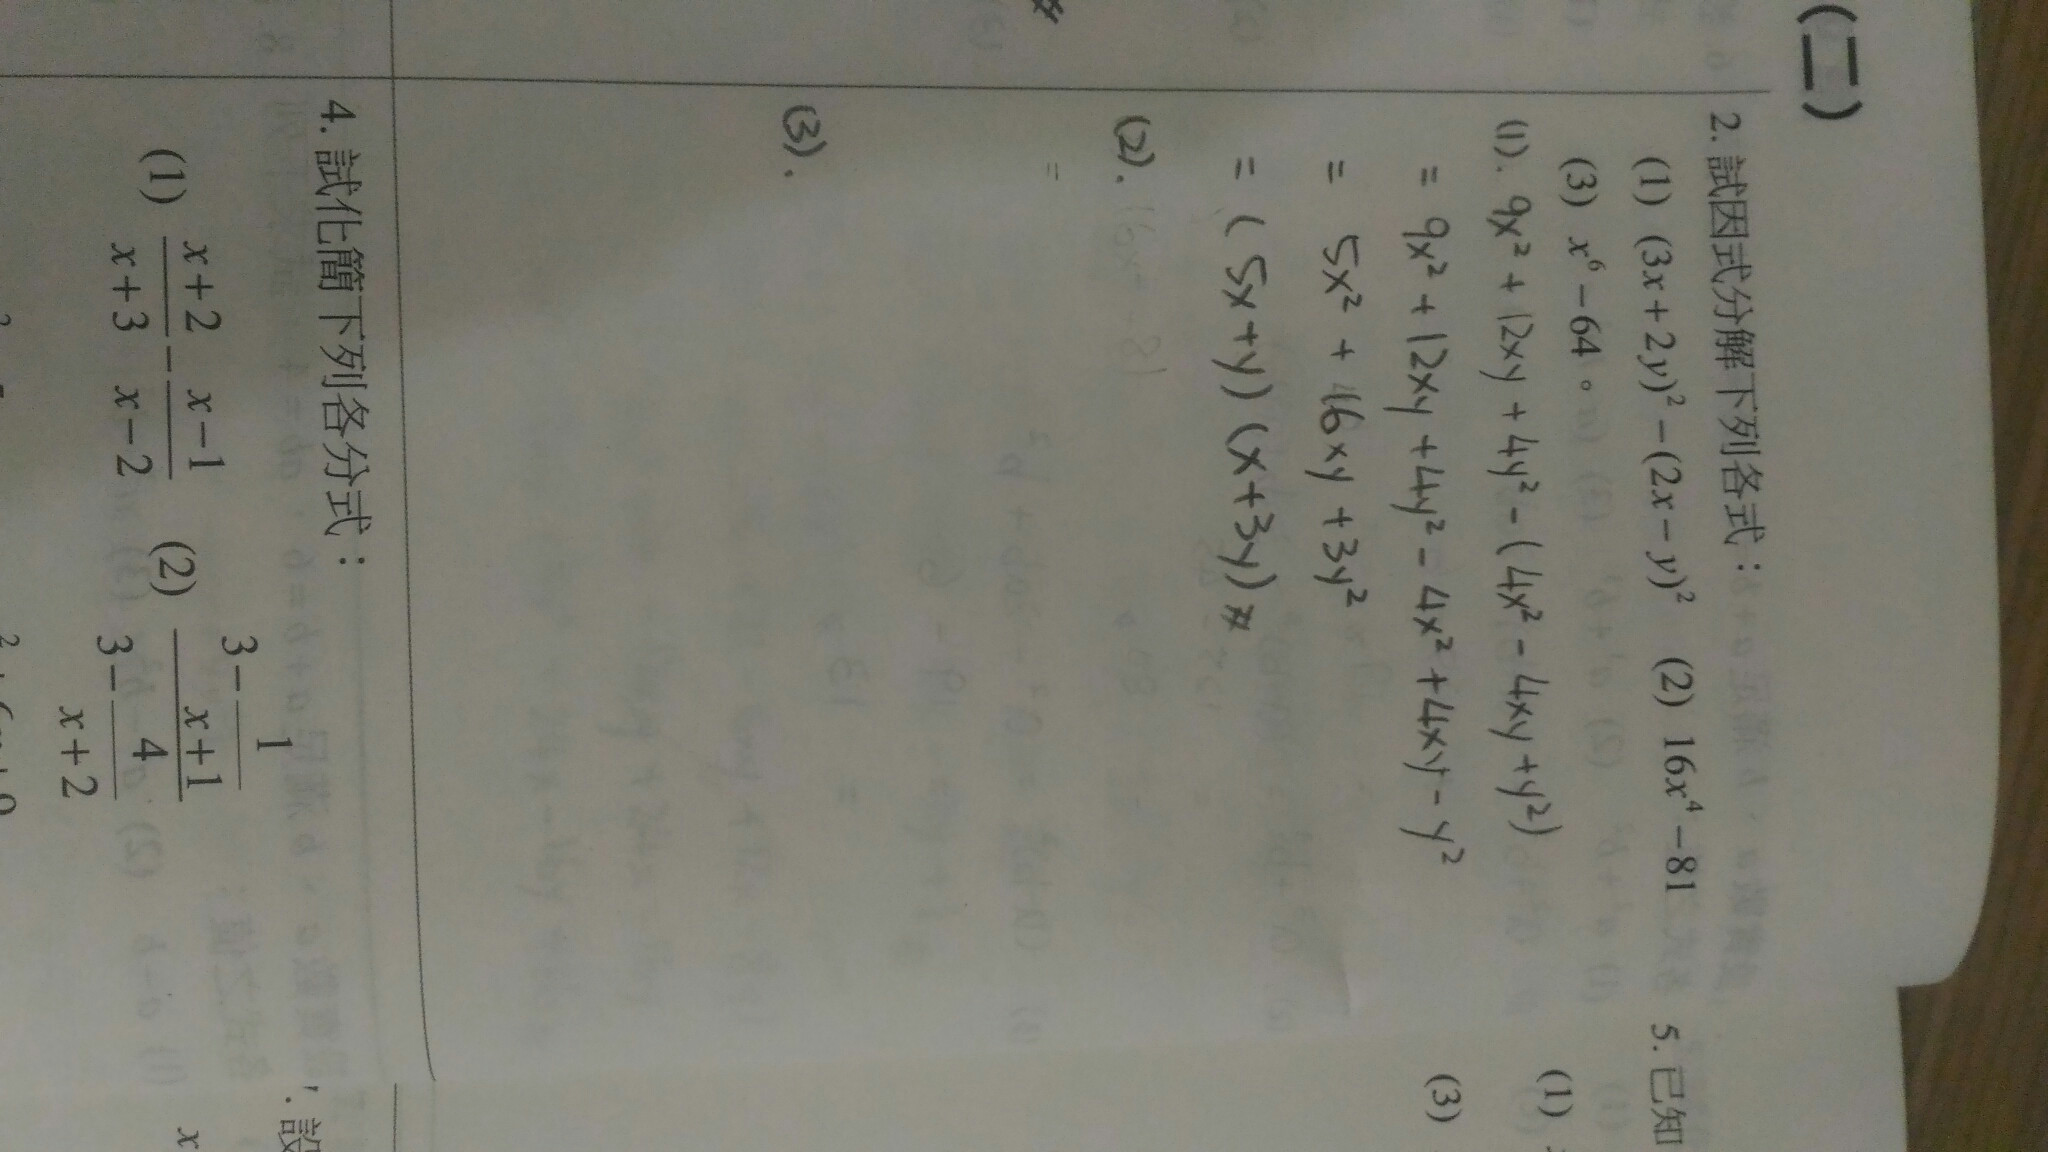 (二)
2. 試因式分解下列各式：
(1) (3x+2y)²−(2x−y)² (2) 16x⁴−81
(3) x⁶−64。
(1). 9x²+12xy+4y²-(4x²-4xy+y²)
= 9x²+12xy+4y²-4x²+4xy-y²
= 5x²+16xy+3y²
= (5x+y)(x+3y)#
(2). 16x⁴-81
=
(3).
4. 試化簡下列各分式：
(1) (x+2)/(x+3) − (x−1)/(x−2) (2) (3−1/(x+1))/(3−4/(x+2))
5. 已知
(1)
(3)
設
x